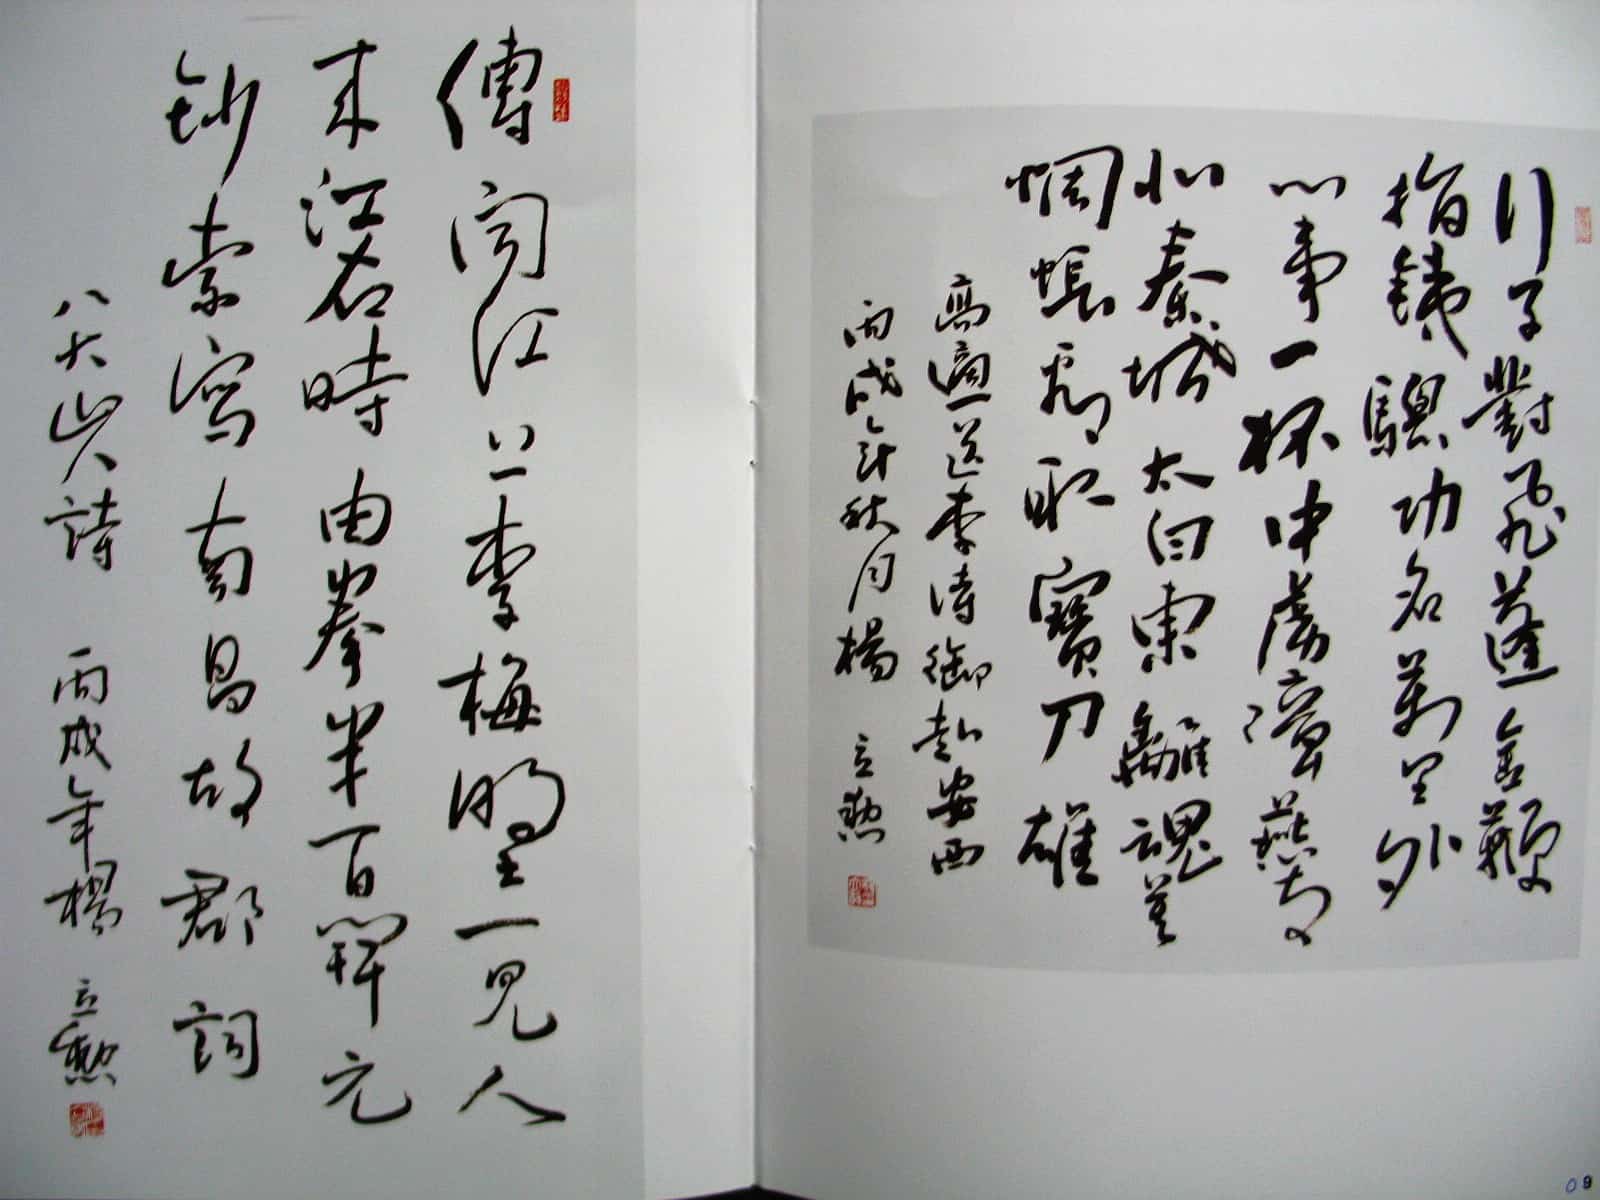 行子對飛蓬金鞭
指鐵驄功名萬里外
心事一杯中虜障燕支
北秦城太白東離魂莫
惆悵看取寶刀雄
高適送李侍御赴安西
丙戌年秋月楊立勲
傳聞江上李梅墅一見人
來江右時由拳半百開元
鈔索寫南昌故郡詞
八大山人詩 丙戌年楊立勲
09